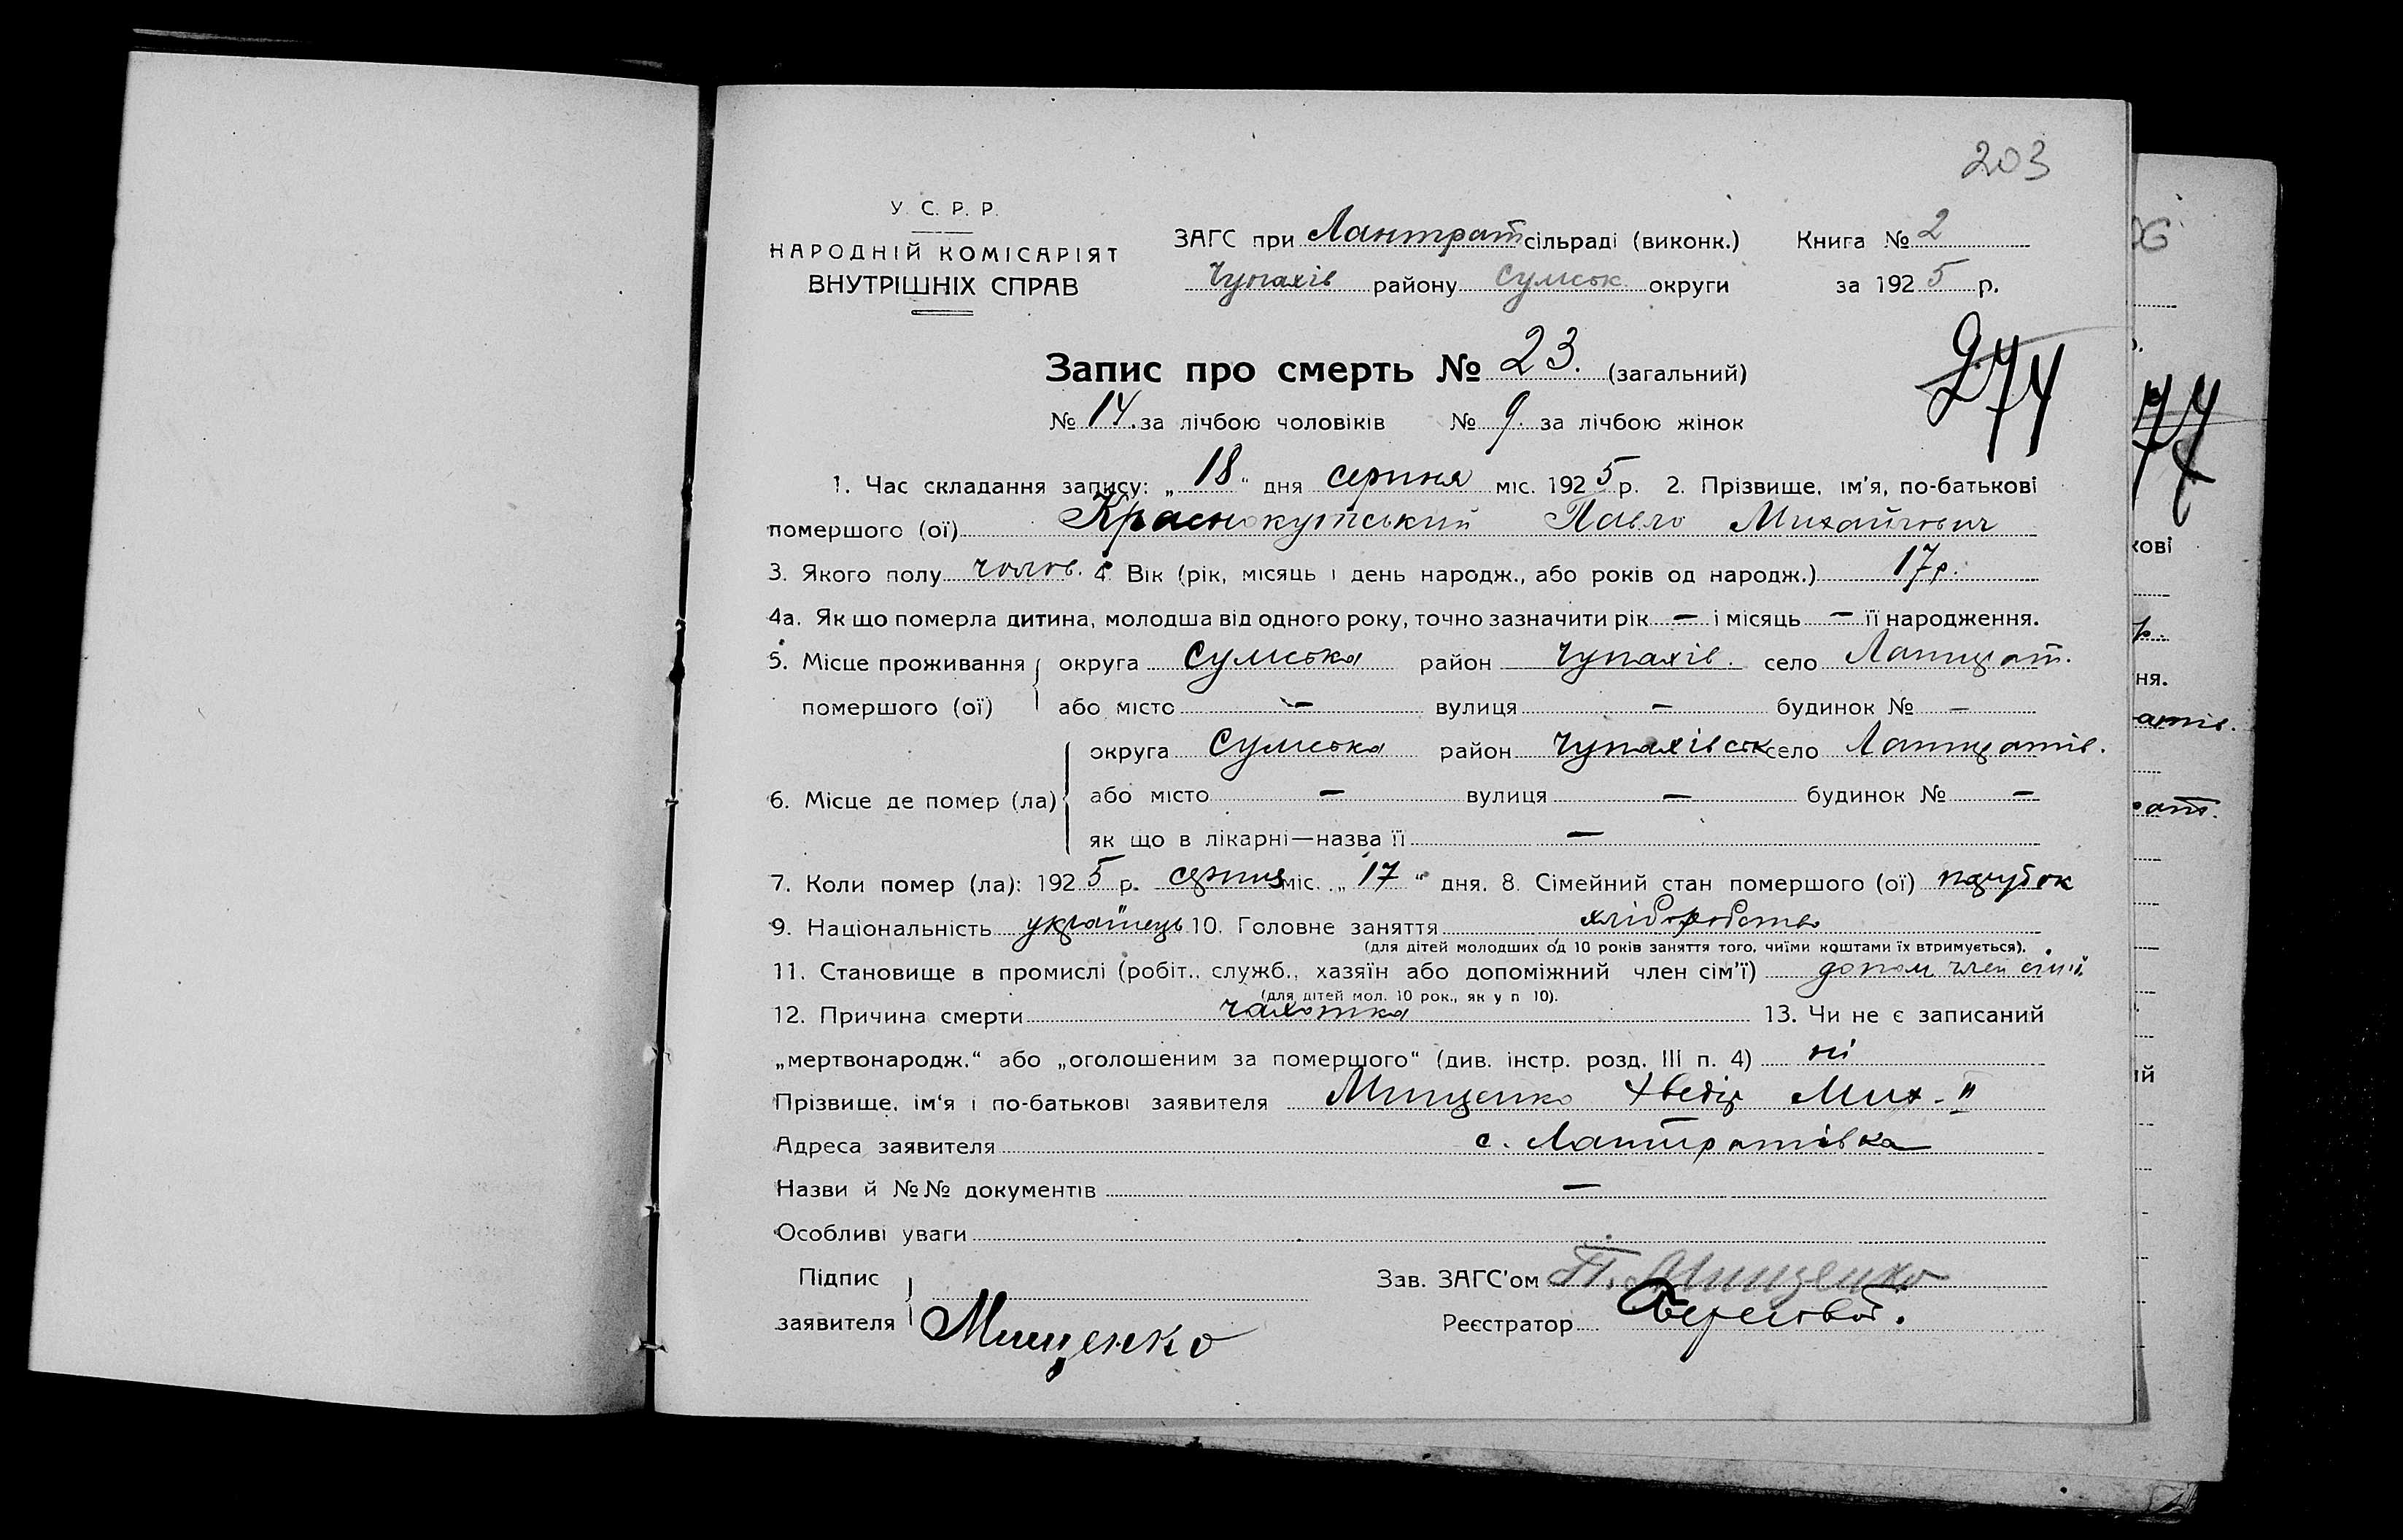 203
У. С. Р. Р.
НАРОДНІЙ КОМІСАРІЯТ
ВНУТРІШНІХ СПРАВ
ЗАГС при Лантрат сільраді (виконк.) Книга № 2
Чупахів району Сумськ округи за 1925 р.
274
Запис про смерть № 23. (загальний)
№ 14. за лічбою чоловіків № 9. за лічбою жінок
1. Час складання запису: „18“ дня серпня міс. 1925 р. 2. Прізвище, ім'я, по-батькові
помершого (ої) Краснокутський Павло Михайлович
3. Якого полу чолов. 4. Вік (рік, місяць і день народж., або років од народж.) 17 р.
4а. Як що померла дитина, молодша від одного року, точно зазначити рік — і місяць — її народження.
5. Місце проживання округа Сумська район Чупахів. село Лантрат.
помершого (ої) або місто — вулиця — будинок № —
округа Сумська район Чупахівськ село Лантратів.
6. Місце де помер (ла) або місто — вулиця — будинок № —
як що в лікарні—назва її —
7. Коли помер (ла): 1925 р. серпня міс. „17“ дня. 8. Сімейний стан помершого (ої) парубок
9. Національність українець 10. Головне заняття хліборобство
(для дітей молодших од 10 років заняття того, чиїми коштами їх втримується).
11. Становище в промислі (робіт., служб., хазяїн або допоміжний член сім'ї) допом. член сім'ї
(для дітей мол. 10 рок., як у п 10).
12. Причина смерти чахотка 13. Чи не є записаний
„мертвонародж.“ або „оголошеним за помершого“ (див. інстр. розд. III п. 4) ні
Прізвище, ім'я і по-батькові заявителя Мищенко Хведір Мих-
Адреса заявителя с. Лантратівка
Назви й №№ документів —
Особливі уваги
Підпис
заявителя Мищенко
Зав. ЗАГС'ом П. Мищенко
Реєстратор